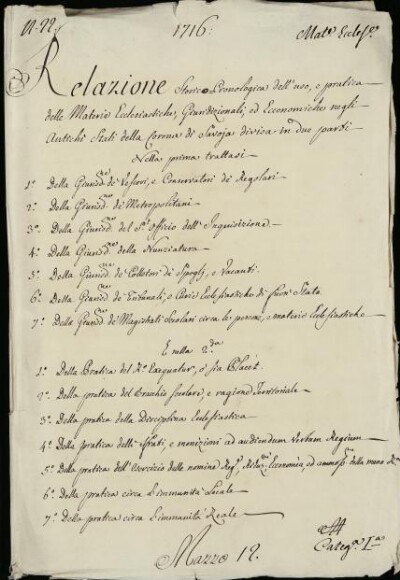 1716:
Mat.e Eccles.e
Relazione Storico Cronologica dell'uso, e pratica
delle Materie Ecclesiastiche, Giurisdizionali, ed Economiche negli
Antichi Stati della Corona di Savoja divisa in due parti
Nella prima trattasi
1.o Della Giurisd.ne de' Vescovi, e Conservatori de' Regolari
2.o Della Giurisd.ne de' Metropolitani
3.o Della Giurisd.ne del S.to Offizio dell'Inquisizione
4.o Della Giurisd.ne della Nunziatura
5.o Della Giurisd.ne de' Collettori di Spoglj, e Vacanti
6.o Della Giurisd.ne de' Tribunali, e Curie Ecclesiastiche di fuori Stato
7.o Della Giurisd.ne de' Magistrati Secolari circa le persone, e materie Ecclesiastiche
E nella 2.da
1.o Della Pratica del R.o Exequatur, o sia Placet
2.o Della pratica del Bracchio secolare, e ragione Territoriale
3.o Della pratica della Disciplina Ecclesiastica
4.o Della pratica delli sfrati, e monizioni ad audiendum Verbum Regium
5.o Della pratica dell'Esercizio delle nomine Reg.e, Economia, ed della mano R
6.o Della pratica circa l'immunità Locale
7.o Della pratica circa l'immunità Reale
Categ.a I.a
Mazzo 12.